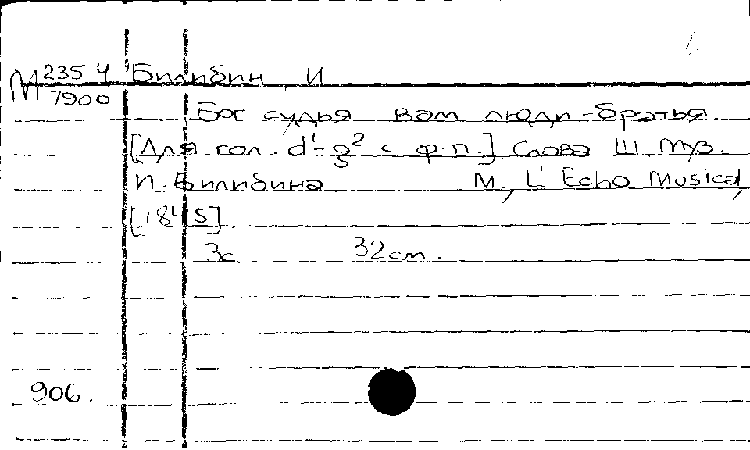 М 235 4 Билибин, И
1900
Бог судья вам люди-братья.
[Для гол. d¹-g² с ф.п.] Слова Ш. муз.
И. Билибина М, L'Echo Musical,
[1845]
3с 32см.
906.